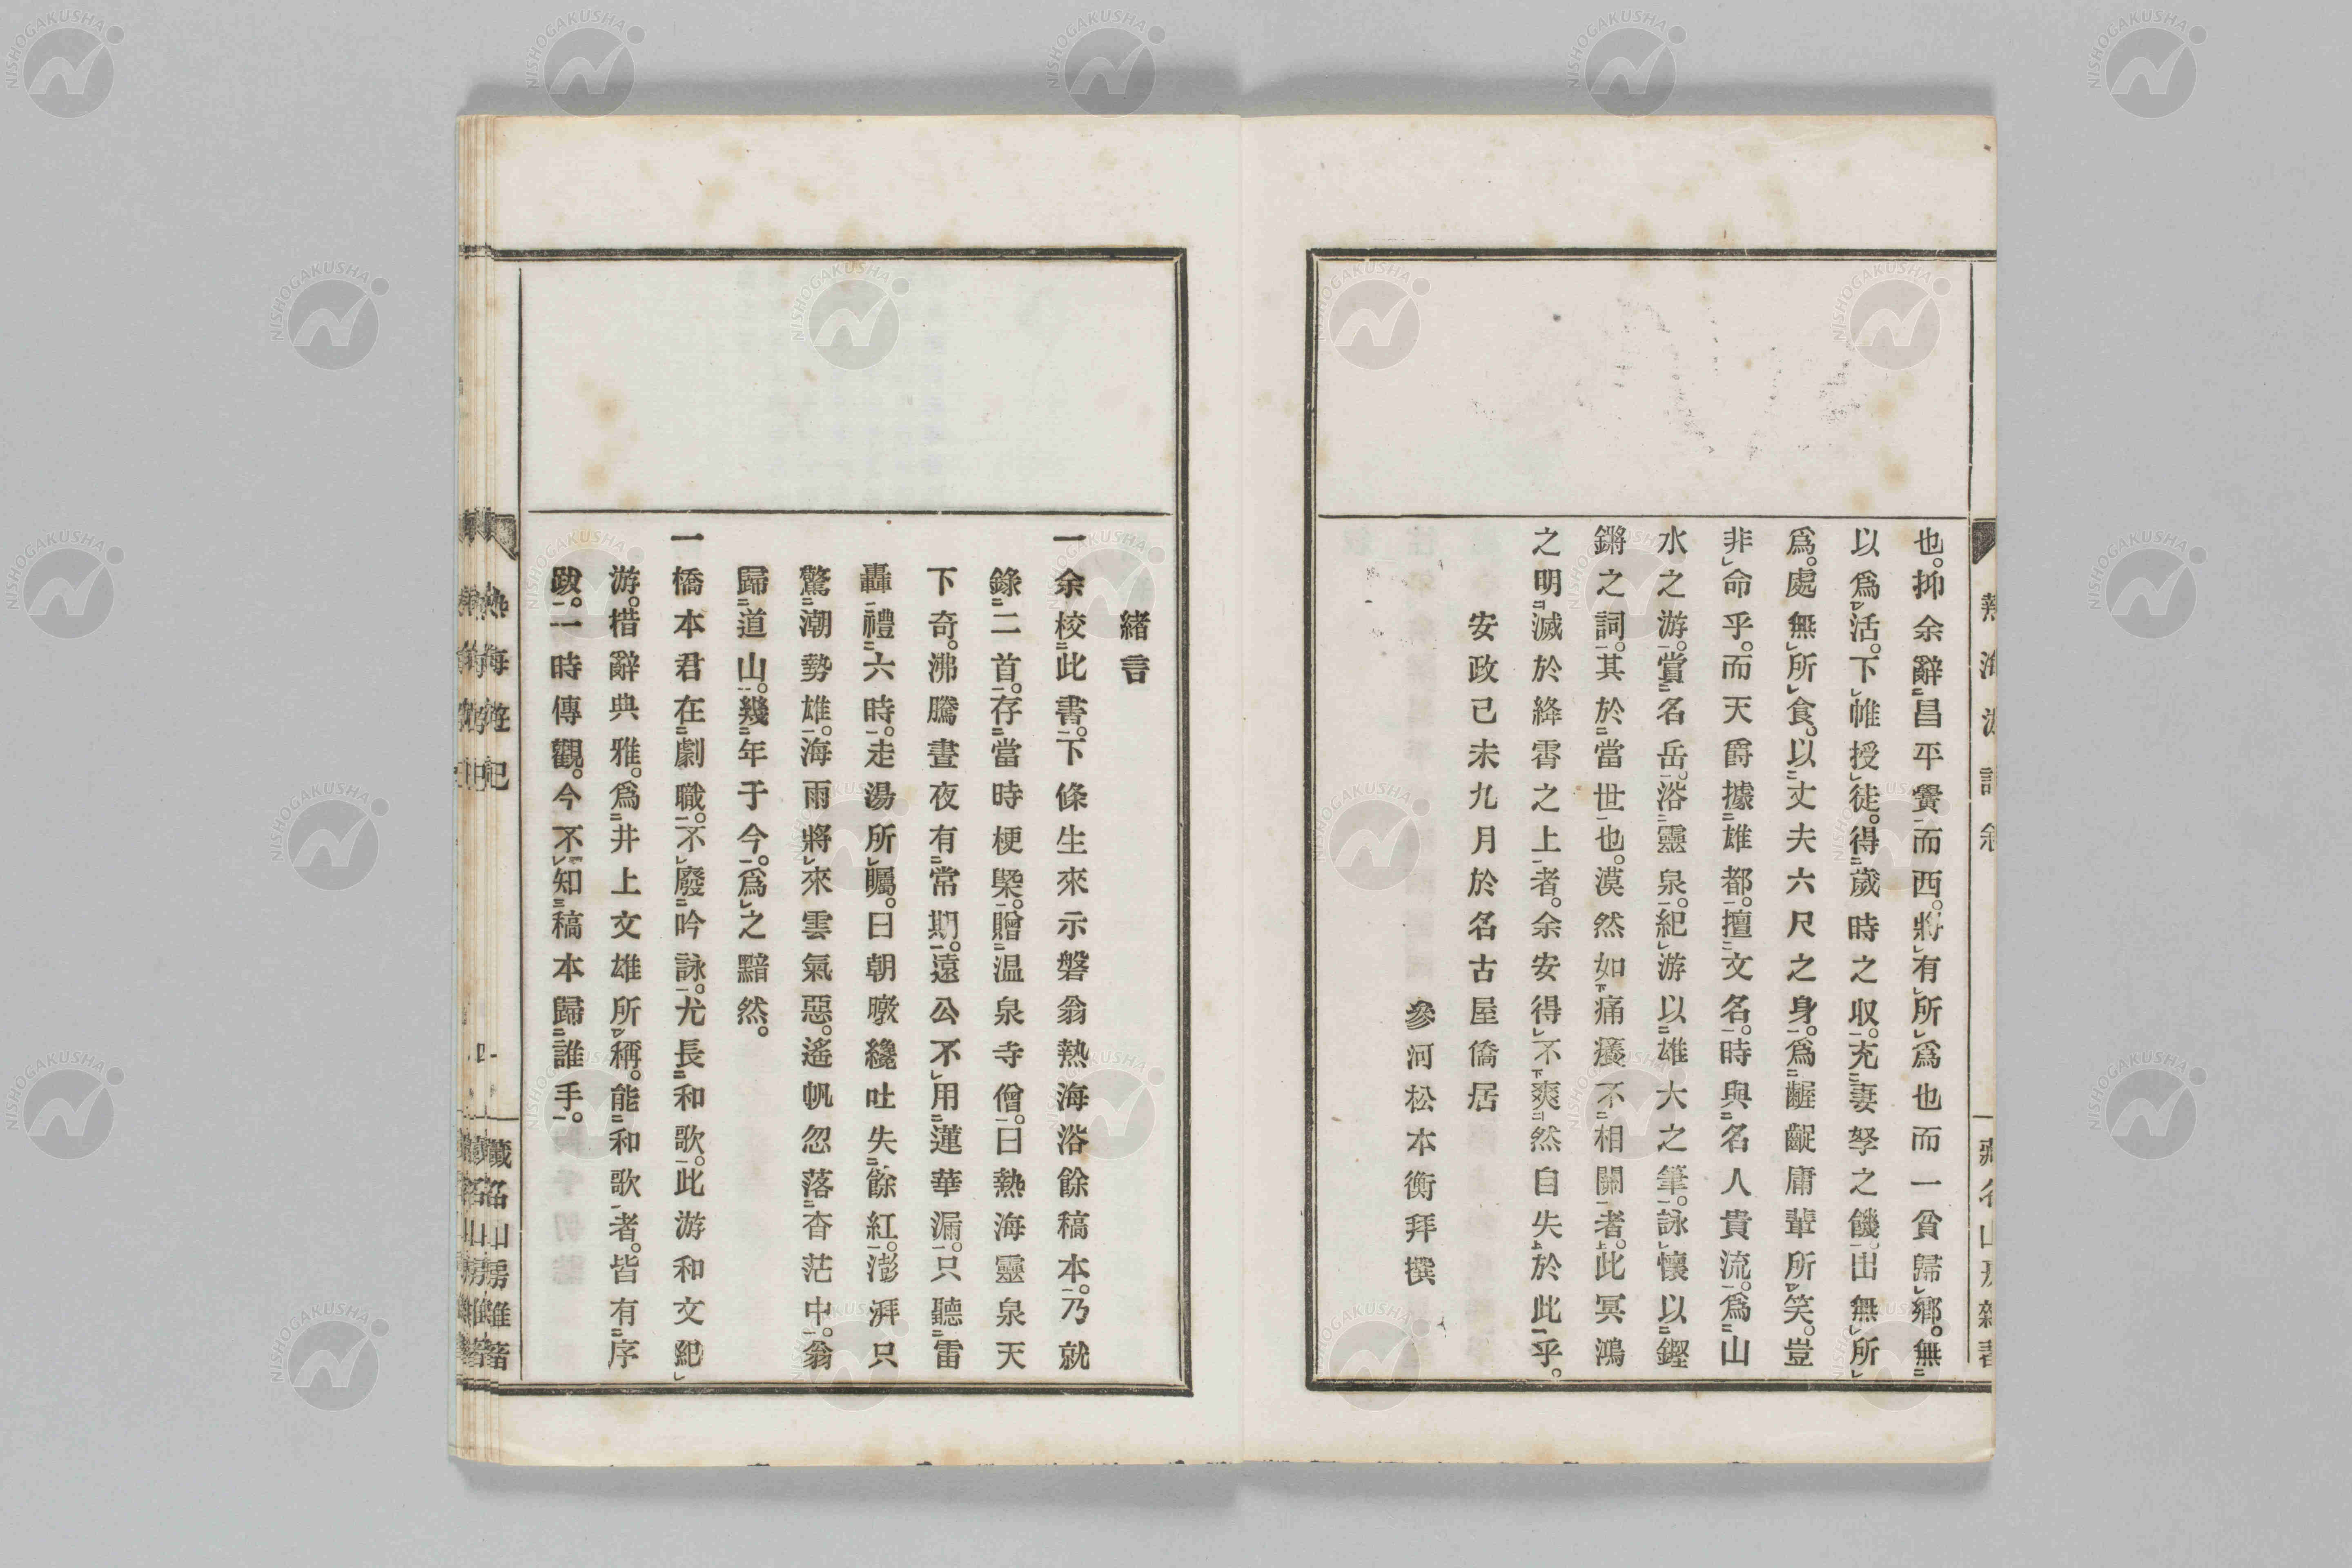 也。抑余辭昌平黌而西。將有所爲也而一貧歸鄉。無
以爲活。下帷授徒。得歲時之収。充妻孥之饑。出無所
爲。處無所食。以丈夫六尺之身。爲齷齪庸輩所笑。豈
非命乎。而天爵據雄都。擅文名。時與名人貴流。爲山
水之游。賞名岳。浴靈泉。紀游以雄大之筆。詠懷以鏗
鏘之詞。其於當世也。漠然如痛癢不相關者。此冥鴻
之明滅於絳霄之上者。余安得不爽然自失於此乎。
安政己未九月於名古屋僑居
參河松本衡拜撰
緒言
一余校此書。下條生來示磐翁熱海浴餘稿本。乃就
錄二首。存當時梗槩。贈温泉寺僧。曰熱海靈泉天
下奇。沸騰晝夜有常期。遠公不用蓮華漏。只聽雷
轟禮六時。走湯所矚。曰朝暾纔吐失餘紅。澎湃只
驚潮勢雄。海雨將來雲氣惡。遙帆忽落杳茫中。翁
歸道山。幾年于今。爲之黯然。
一橋本君在劇職。不廢吟詠。尤長和歌。此游和文紀
游。措辭典雅。爲井上文雄所稱。能和歌者。皆有序
跋。一時傳觀。今不知稿本歸誰手。
熱海遊記
藏名山房雜著